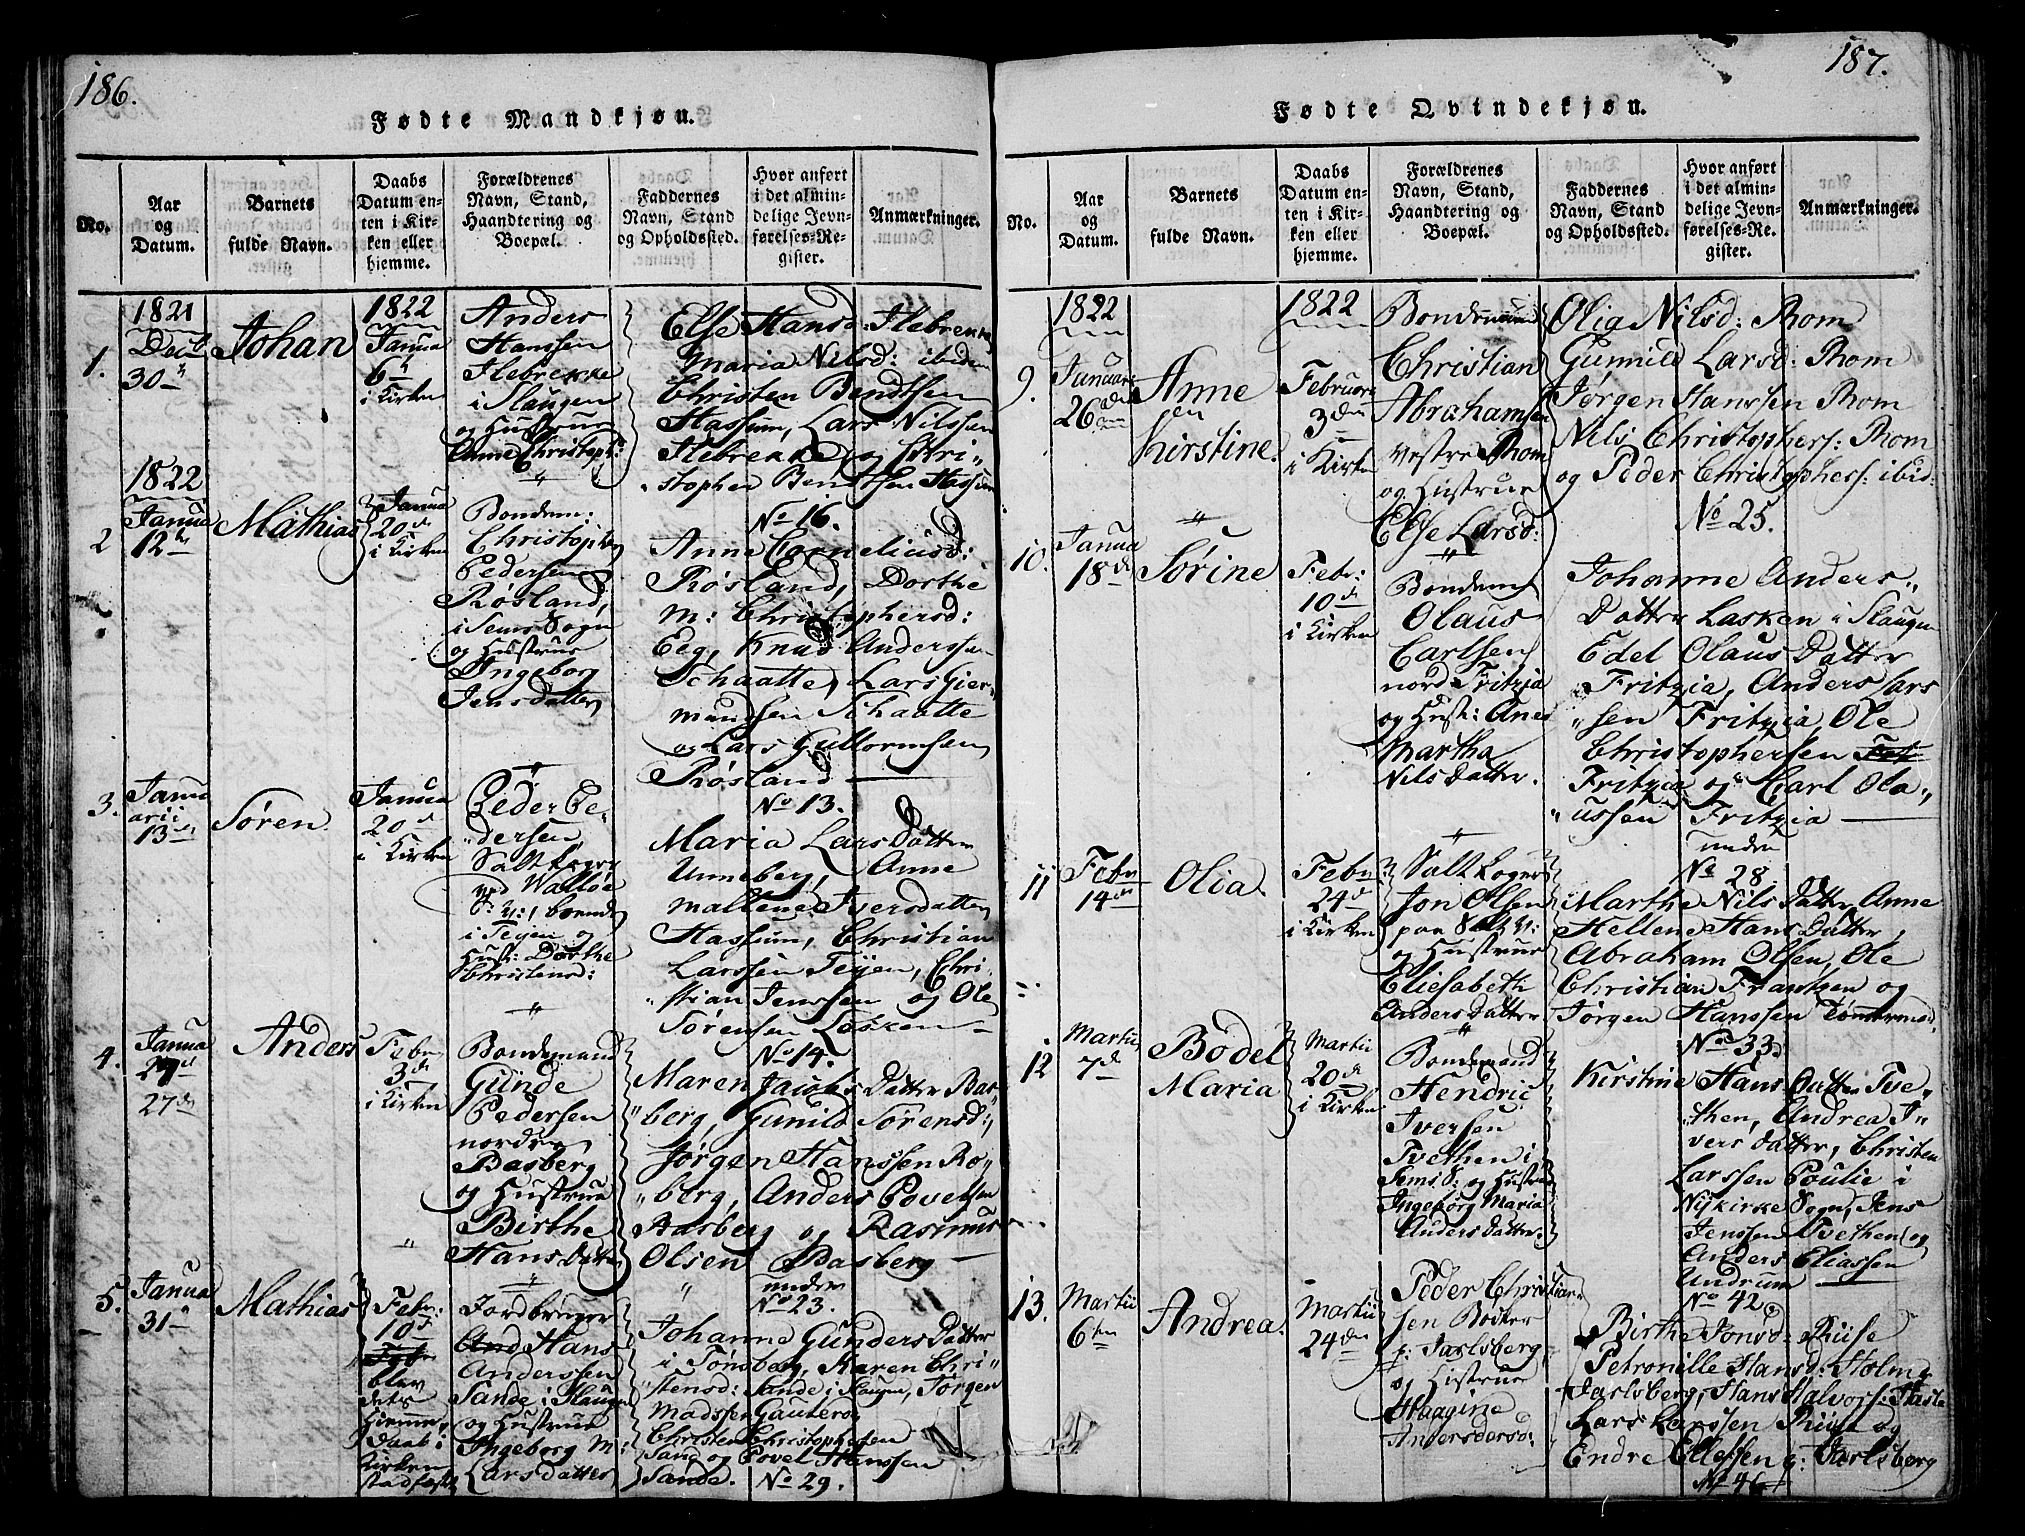 186.
Fødte Mandkjøn.
No.
Aar
og
Datum.
Barnets
fulde Navn.
Daabs
Datum en-
ten i Kir-
ken eller
hjemme.
Forældrenes
Navn, Stand,
Haandtering og
Boepæl.
Faddernes
Navn, Stand
og Opholdssted.
Hvor anført
i det almin-
delige Jevn-
førelses-Re-
gister.
Anmærkninger.
1.
1821
30
Johan
1822
Janua
6
i Kirken
Anders
Hanssen
Ilebrekke
i Slaugen
og Hustrue
Anne Christoph:
Else Hansd: Ilebrekke
Maria Nilsd: ibidem
Christen Bendtsen
Hassum, Lars Nilssen
Ilebrekke og Chri-
stopher Bendtsen Hassum
No 16.
2
1822
Janua
12
Mathias
Janua
20 d
i Kirken
Bondem:
Christopher
Pedersen
Røsland,
i Sems Sogn
og Hustrue
Ingeborg
Jensdatter
Anne Cornelius:
Røsland, Dorthe
M: Christophersd:
Eeg, Knud Anderssen
Schaatte, Lars Gier-
mundsen Schaatte
og Lars Guttormsen
Røsland
No 13.
3.
Janu
arii
13
Søren
Janua
20 d
i Kirken
Peder Pe-
dersen
Saltkoger
ved Walløe
S: V: boende
i Teyen og
Hust: Dorthe
Christensd:
Maria Lars Datter
Unneberg, Anne
Mallene Iversdatter
Hassum, Christian
Larssen Teyen, Chri-
stian Jenssen og Ole
Sørensen Løsken
No 14.
4.
Janua
27 d
27 d
Anders
Febr:
3 d
i Kirken
Bondemand
Gunde
Pedersen
nordre
Basberg
og Hustrue
Birthe
Hans Datter
Maren Jacobs Datter Bas-
berg, Gunild Sørensd:,
Jørgen Hanssen Ro-
berg, Anders Povelsen
Aasberg og Rasmus
Olsen Basberg
under
No 23.
5.
Janua
31
Mathias
Febr:
10 d
Feb
blev
dets
Hiemme-
daab i
Kirken
stadfæst
Jordbruger
And Hans
Anderssen
Sande i Slaugen
og Hustrue
Ingeborg M:
Larsdatter
Johanne Gunders Datter
i Tønsberg, Karen Chri-
stensd: Sande i Slaugen, Jørgen
Madssen Gauterø,
Christen Christophersen
Sand og Povel Hanssen
Sande.
No 29.
187.
Fødte Qvindekjøn.
No.
Aar
og
Datum.
Barnets
fulde Navn.
Daabs
Datum en-
ten i Kir-
ken eller
hjemme.
Forældrenes
Navn, Stand,
Haandtering og
Boepæl.
Faddernes
Navn, Stand
og Opholdssted.
Hvor anført
i det almin-
delige Jevn-
førelses-Re-
gister.
Anmærkninger.
9.
1822
Januarii
26 den
Anne
Kirstine.
1822
Februarii
3 den
i Kirken
Christian
Abrahamsen
Vestre Rom
og Hustrue
Else Larsd:
Olia Nilsd: Rom
Gunnild Larsd: Rom
Jørgen Hanssen Rom
Nils Christophers: Rom
og Peder Christophers: ibid:
No 25.
10.
Janua
18 d
Sørine
Febr:
10 d
i Kirken
Bondem
Olaus
Carlsen
nord Fritzia
og Hust: Anne
Martha
Nils Datter.
Johanne Anders
Datter Lasken i Slaugen
Edel Olaus Datter
Fritzia, Anders Lars
sen Fritzia, Ole
Christophersen
Fritzia og Carl Ola-
ussen Fritzia
under
No 28
11
Febr
14 d
Olia.
Febr
24 d
i Kirken
Saltkoger
Jon Olsen
paa Salt V:
og Hustrue
Eliesabeth
Anders Datter
Marthe Nils Datter, Anne
Hellene Hans Datter,
Abraham Olsen, Ole
Christian Frantzen og
Jørgen Hanssen Tømmermd.
No 33
12
Martii
7 d
Bodel
Maria
Martii
20 d
i Kirken
Bondemand
Hendric
Iversen
Tvethen i
Sems S: og Hustrue
Ingeborg Maria
Anders Datter.
Kirstine Hans Datter Tve-
then, Andrea I-
vers Datter, Christen
Larssen Poulie i
Nykirke Sogn, Jens
Jenssen Tvethen og
Anders Eliassen
Undrum
No 42
13.
Martii
6 ten
Andrea.
Martii
24 den
Peder Christian-
sen Bødker
p: Jarlsberg,
og Hustrue
Haagine
Andersdersd:
Birthe Jonsd: Ruse
Petronille Hansd: Holm
Jarlsberg, Hans Halvors:
Lars Larssen og
Endre Ellefsen p: Jarlsberg
No 46